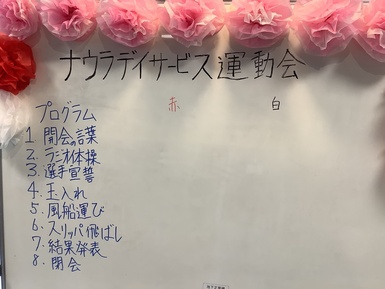 ナウラデイサービス運動会
赤 白
プログラム
1 開会の言葉
2. ラジオ体操
3. 選手宣誓
4. 玉入れ
5. 風船運び
6. スリッパ飛ばし
7. 結果発表
8. 閉会